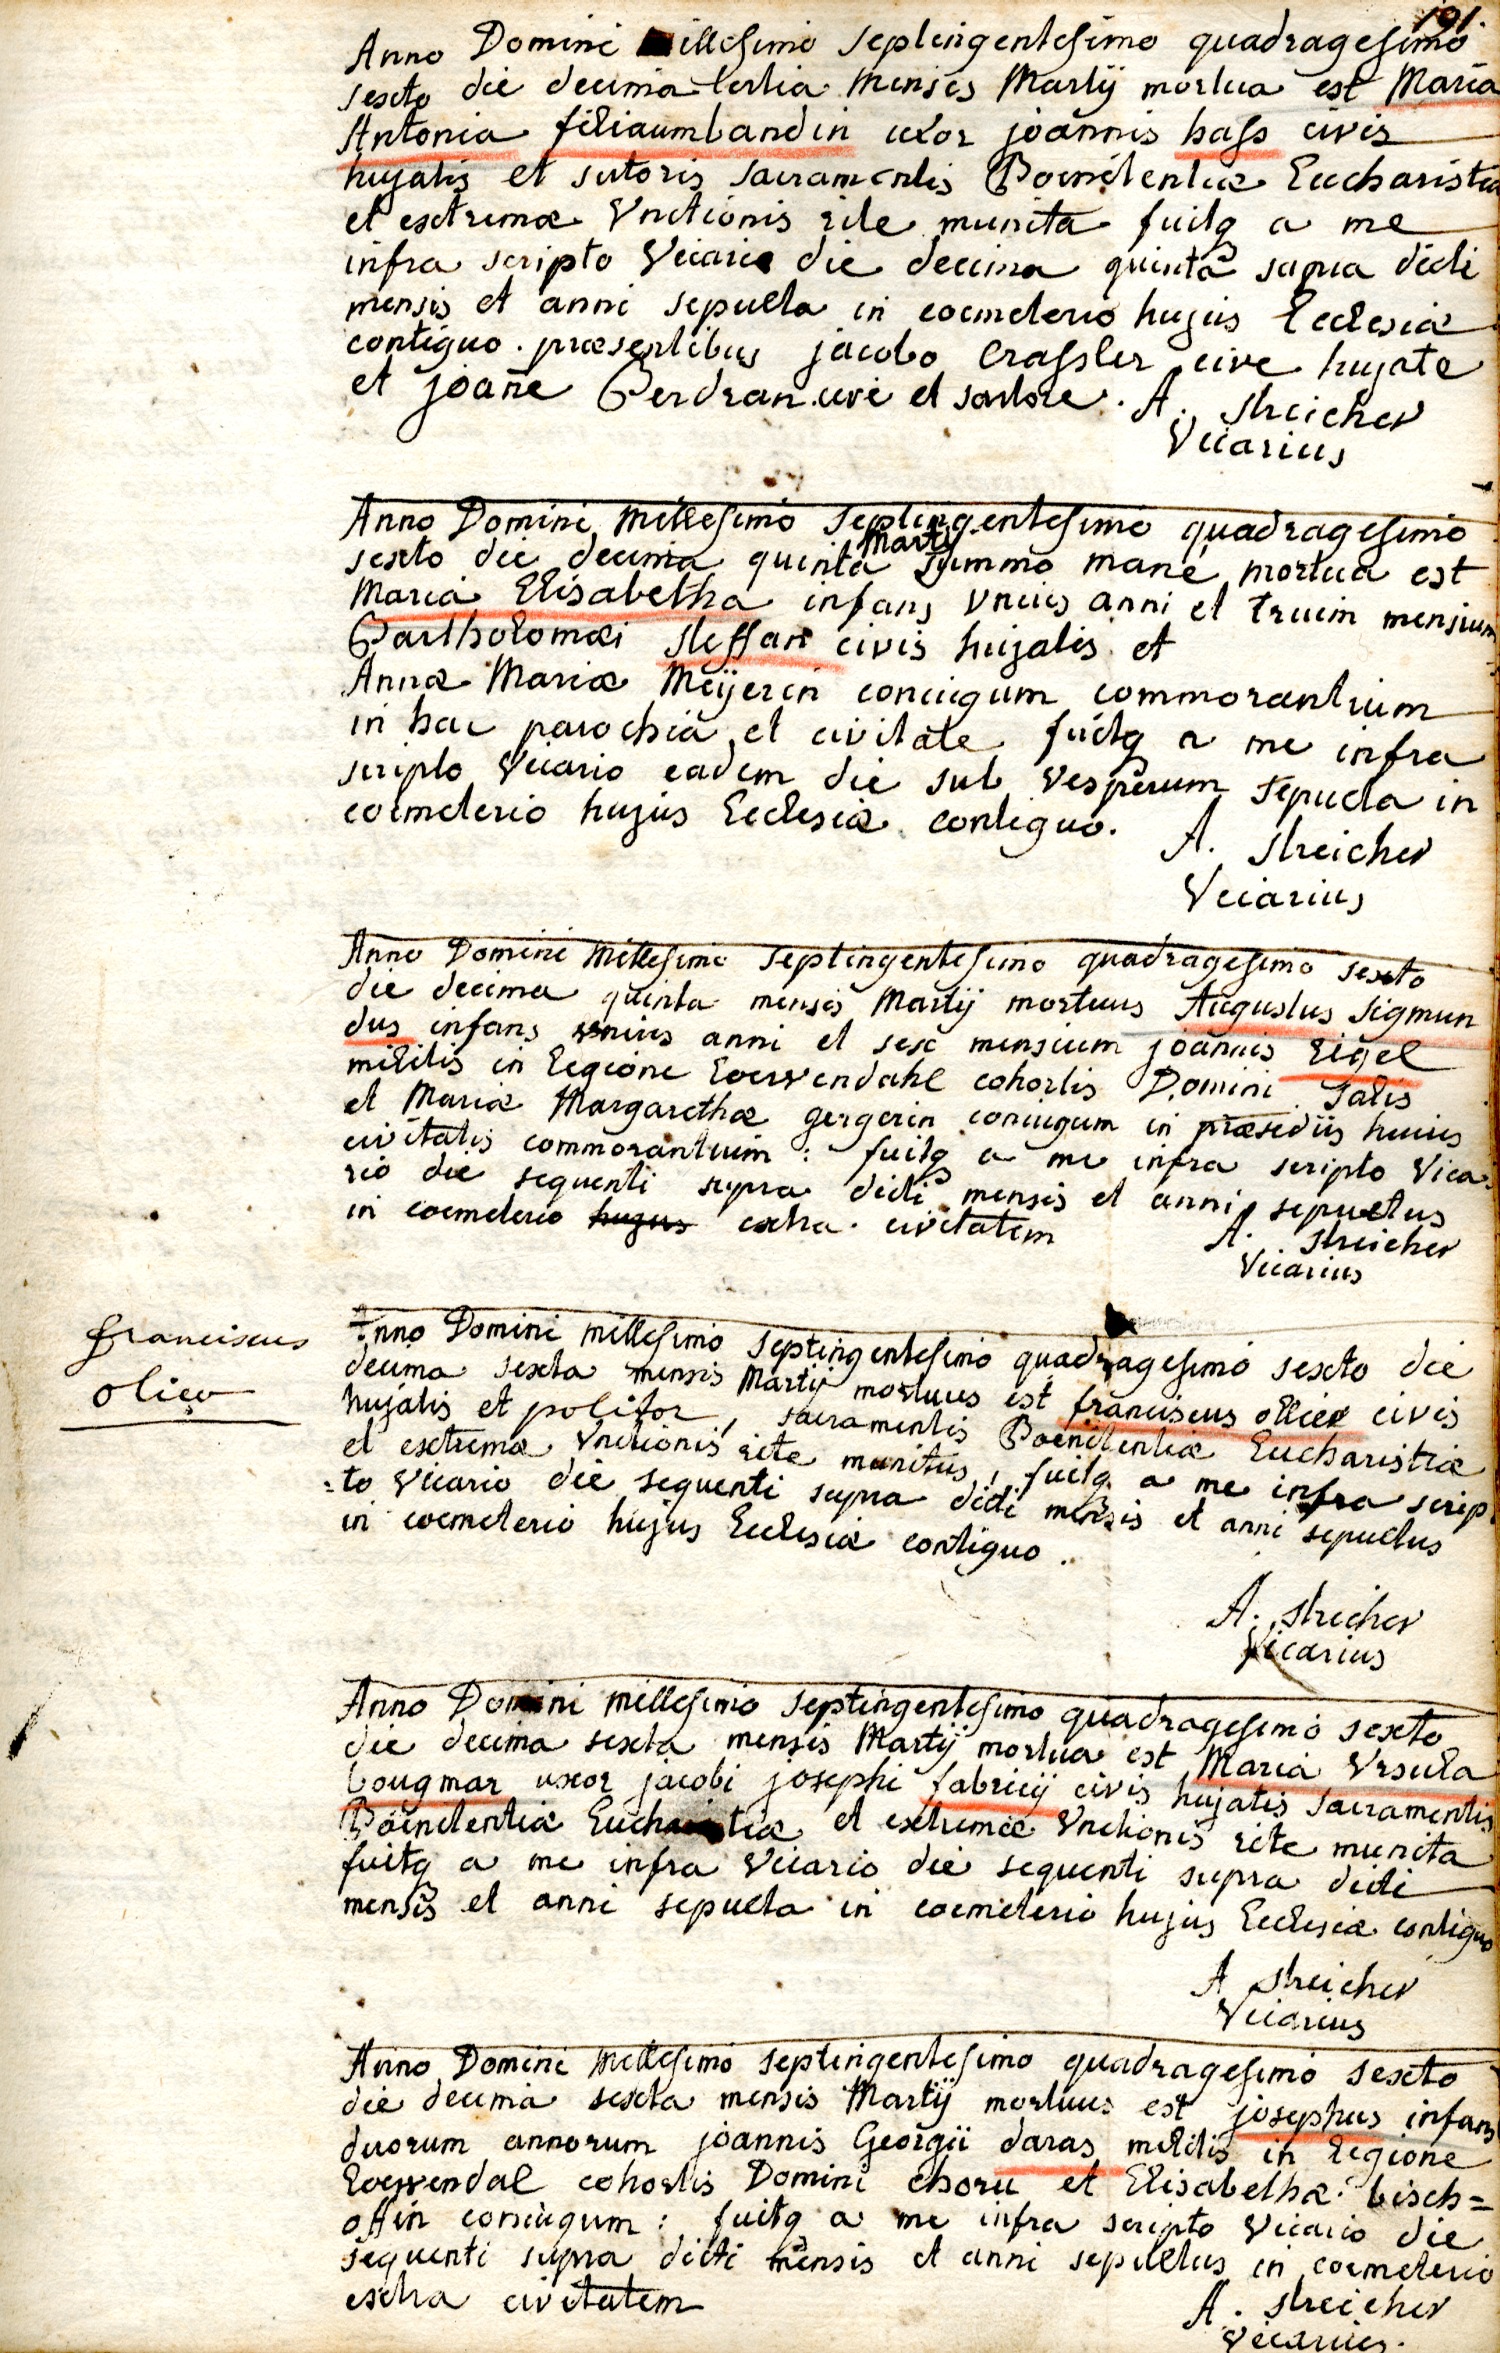 191.
Anno Domini Millesimo Septingentesimo quadragesimo
sexto die decima tertia Mensis Martij mortua est Maria
Antonia filiaumbandin uxor joannis hass civis
hujatis et sutoris sacramentis Poenitentiæ Eucharistiæ
et extremæ Vnctionis rite munita fuitq a me
infra scripto Vicario die decima quinta supra dicti
mensis et anni sepulta in coemeterio hujus Ecclesiæ
contiguo. præsentibus jacobo Crassler cive hujate
et joañe Perdran cive et sartore. A. Streicher
Vicarius
Anno Domini Millesimo Septingentesimo quadragesimo
sexto die decima quinta Martij summo mane mortua est
Maria Elisabetha infans Vnius anni et trium mensium
Bartholomæi Steffan civis hujatis et
Annæ Mariæ Meijerin conjugum commorantium
in hac parochia et civitate fuitq a me infra
scripto Vicario eadem die sub Vesperum sepulta in
coemeterio hujus Ecclesiæ contiguo.
A. Streicher
Vicarius
Anno Domini Millesimo Septingentesimo quadragesimo sexto
die decima quinta mensis Martij mortuus Augustus Sigmun
dus infans vnius anni et sex mensium joannis Rigel
militis in Legione Loewendahl cohortis Domini Salis
et Mariæ Margarethæ gergerin coniugum in præsidiis huius
civitatis commorantium : fuitq a me infra scripto Vica
rio die sequenti supra dicti mensis et anni sepultus
in coemeterio hujus extra civitatem
A. Streicher
Vicarius
franciscus
olier
Anno Domini millesimo septingentesimo quadragesimo sexto die
decima sexta mensis Martij mortuus est franciscus ollier civis
hujatis et politor, sacramentis Poenitentiæ Eucharistiæ
et extremæ Vnctionis rite munitus, fuitq a me infra scrip
=to Vicario die sequenti supra dicti mensis et anni sepultus
in coemeterio hujus Ecclesiæ contiguo.
A. Streicher
Vicarius
Anno Domini millesimo septingentesimo quadragesimo sexto
die decima sexta mensis Martij mortua est Maria Vrsula
bougmar uxor jacobi josephi fabricij civis hujatis Sacramentis
Poenitentiæ Eucharistiæ et extremæ Vnctionis rite munita
fuitq a me infra Vicario die sequenti supra dicti
mensis et anni sepulta in coemeterio hujus Ecclesiæ contiguo
A Streicher
Vicarius
Anno Domini Millesimo septingentesimo quadragesimo sexto
die decima sexta mensis Martij mortuus est josephus infans
duorum annorum joannis Georgii daras militis in Legione
Loewendal cohortis Domini choru et Elisabethæ bisch=
offin coniugum : fuitq a me infra scripto Vicario die
sequenti supra dicti mensis et anni sepultus in coemeterio
extra civitatem
A. Streicher
Vicarius.